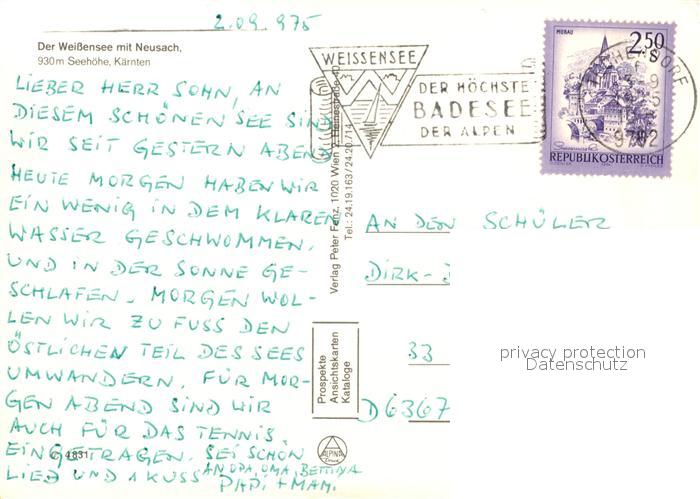 2.09.975
Der Weißensee mit Neusach,
930m Seehöhe, Kärnten
LIEBER HERR SOHN, AN
DIESEM SCHÖNEN SEE SIND
WIR SEIT GESTERN ABEND
HEUTE MORGEN HABEN WIR
EIN WENIG IN DEM KLAREN
WASSER GESCHWOMMEN,
UND IN DER SONNE GE-
SCHLAFEN. MORGEN WOL-
LEN WIR ZU FUSS DEN
ÖSTLICHEN TEIL DES SEES
UMWANDERN. FÜR MOR-
GEN ABEND SIND WIR
AUCH FÜR DAS TENNIS.
EINGETRAGEN. SEI SCHON
LIEB UND 1 KUSS AN OPA, OMA, BETTINA
PAPI + MAM.
4831
WEISSENSEE
DER HÖCHSTE
BADESEE
DER ALPEN
MURAU
2.50
S
REPUBLIK ÖSTERREICH
Verlag Peter Fanz, 1020 Wien
Tel.: 24.19.163/24.20.714
AN DEN SCHÜLER
DIRK-
33
D6367
Prospekte
Ansichtskarten
Kataloge
ALPINA
Druck
privacy protection
Datenschutz